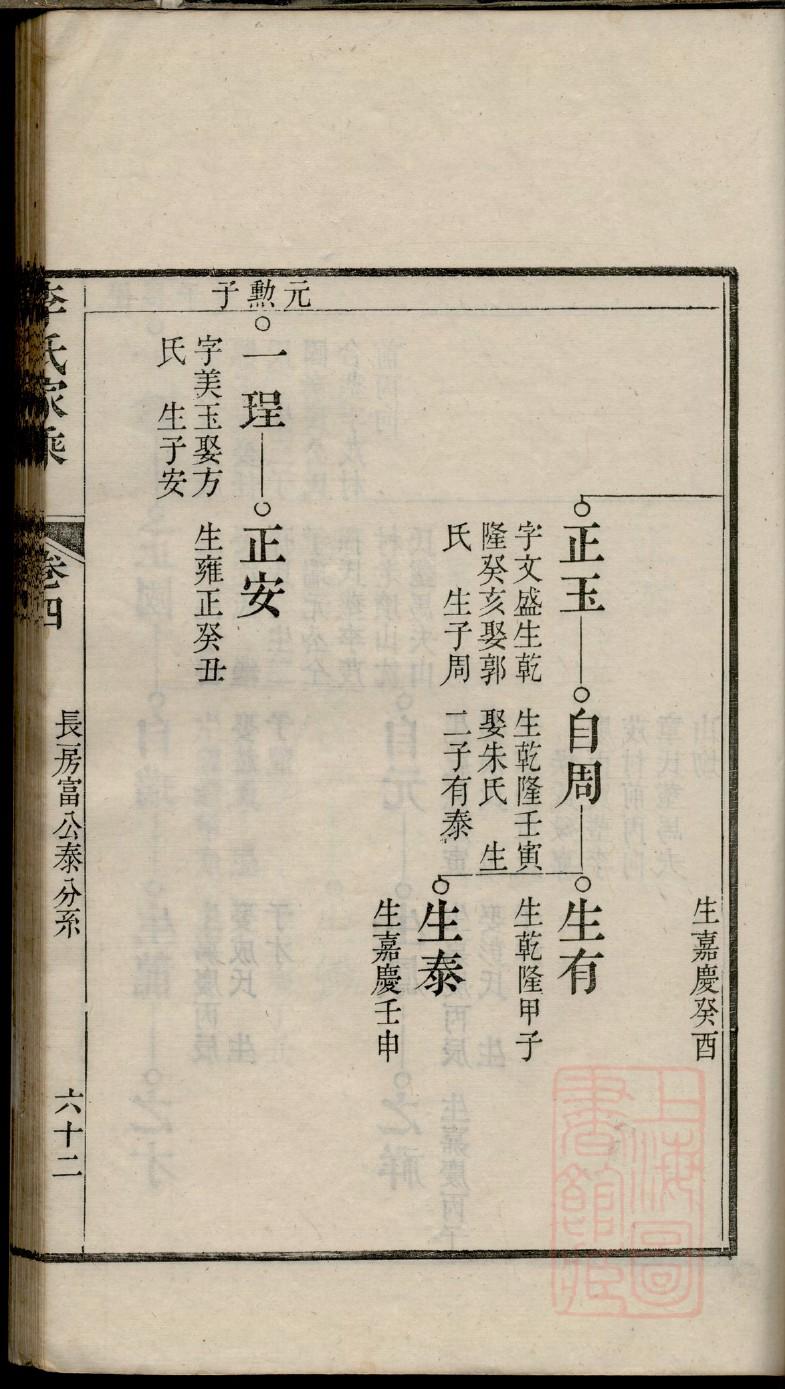 生嘉慶癸酉
正玉
字文盛生乾
隆癸亥娶郭
氏 生子周
自周
生乾隆壬寅
娶朱氏 生
二子有泰
生有
生乾隆甲子
生泰
生嘉慶壬申
元勲子
一珵
字美玉娶方
氏 生子安
正安
生雍正癸丑
李氏家乘
卷四
長房富公泰分系
六十二
上海圖
書館藏